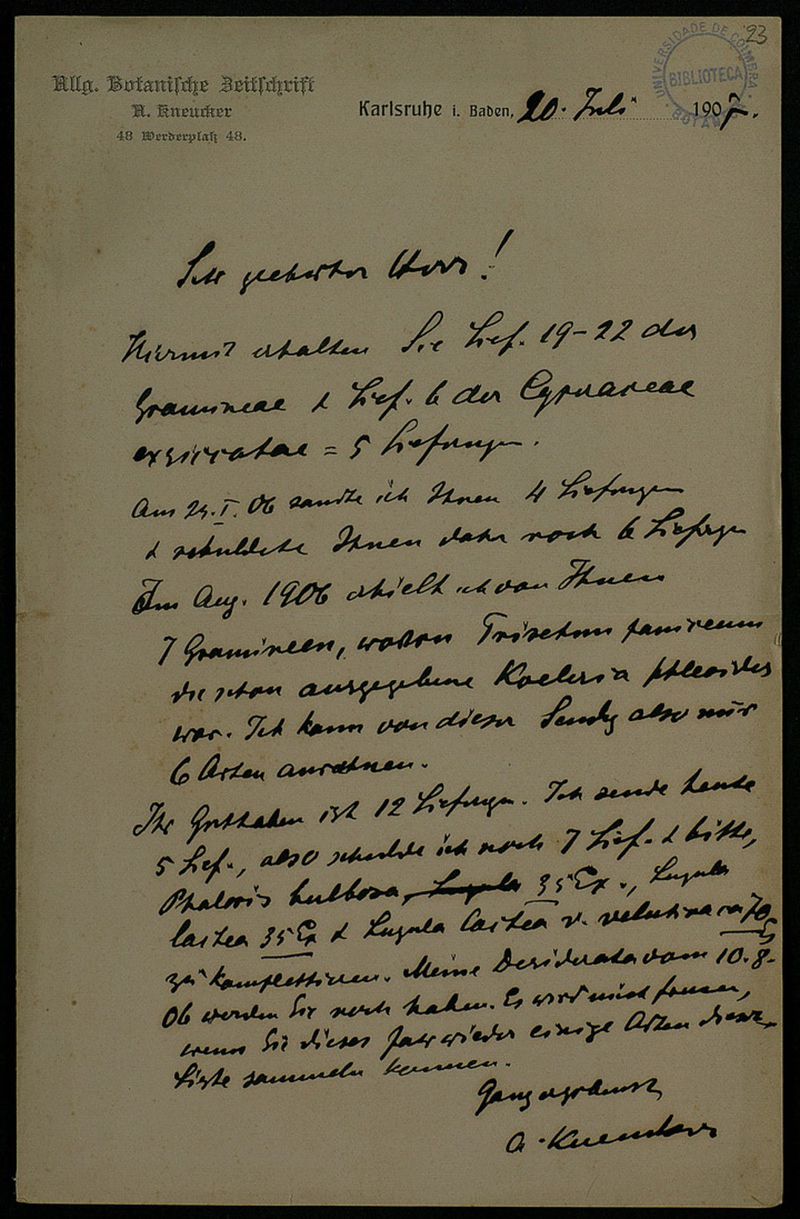 23
UNIVERSIDADE DE COIMBRA
BIBLIOTECA
BOTAN
Allg. Botanische Zeitschrift
A. Kneucker
48 Werderplatz 48.
Karlsruhe i. Baden, 20. Juli 1907.
Sehr geehrter Herr!
Hiermit erhalten Sie Lief. 19-22 der
Gramineae & Lief. 6 der Cyperaceae
exsiccatae = 5 Liefrungen.
Am 29. I. 06 sandte ich Ihnen 4 Liefrungen
& schuldete Ihnen daher noch 6 Liefrgen
Im Aug. 1906 erhielt ich von Ihnen
7 Gramineen, wovon Trisetum paniceum
die schon ausgegebene Koeleria phleoides
war. Ich kann von dieser Sendg also nur
6 Arten anrechnen.
Ihr Guthaben ist 12 Liefrugen. Ich sende heute
5 Lief., also schulde ich noch 7 Lief. & bitte,
Phalaris bulbosa, 35 Ex., Luzula
lactea 35 Ex & Luzula lactea v. velutina ca 70 Ex
zu komplettieren. Meine Desiderata vom 10. 8.
06 werden Sie noch haben. Es wird mich freuen,
wenn Sie dieses Jahr wieder einige Arten dieser
Liste sammeln können.
Ganz ergebenst
A. Kneucker